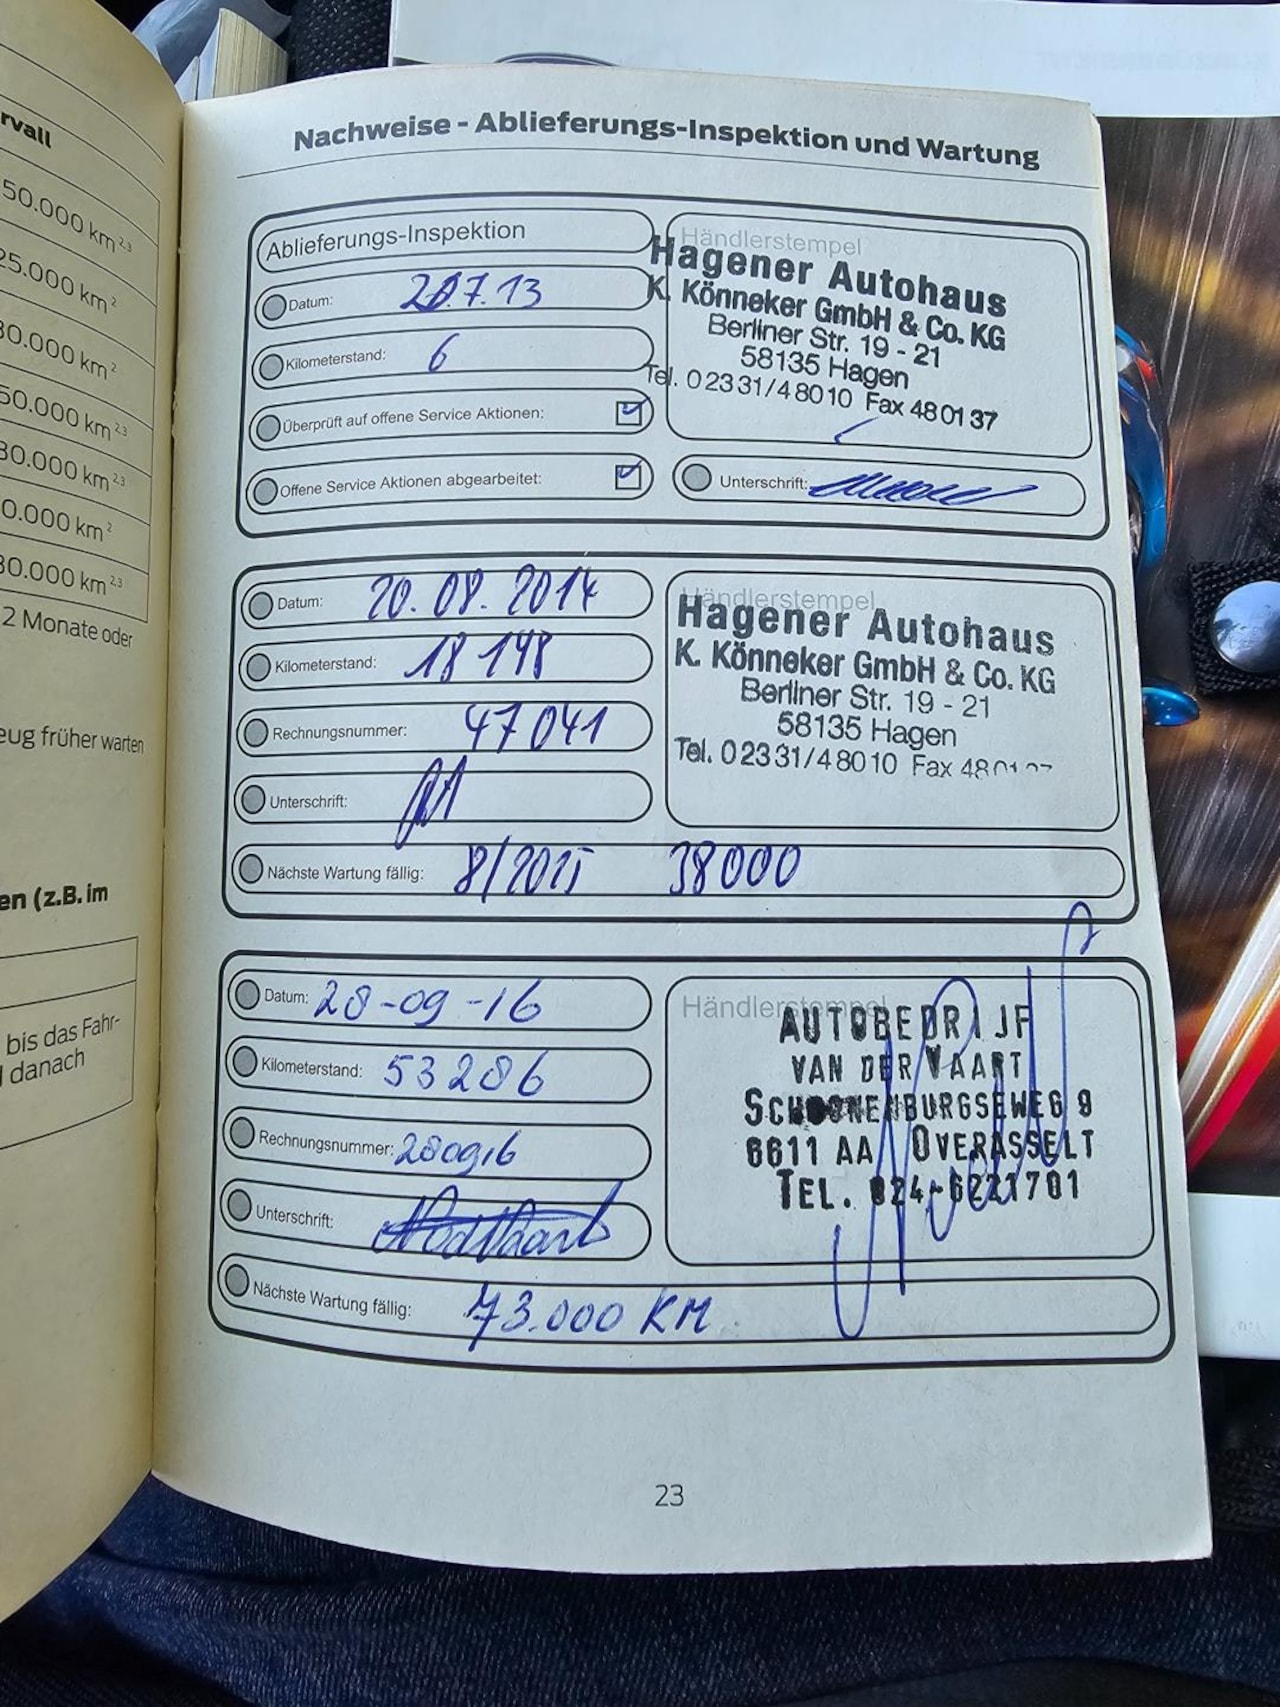 rvall
50.000 km 2,3
25.000 km 2
30.000 km 2
50.000 km 2,3
30.000 km 2,3
0.000 km 2
30.000 km 2,3
2 Monate oder
eug früher warten
en (z.B. im
bis das Fahr-
danach
Nachweise - Ablieferungs-Inspektion und Wartung
Ablieferungs-Inspektion
Datum:
Kilometerstand: 6
Überprüft auf offene Service Aktionen:
Offene Service Aktionen abgearbeitet:
Händlerstempel
Hagener Autohaus
K. Könneker GmbH & Co. KG
Berliner Str. 19 - 21
58135 Hagen
Tel. 0 23 31/4 80 10 Fax 48 01 37
Unterschrift:
Datum: 20.08.2014
Kilometerstand: 18 148
Rechnungsnummer: 47041
Unterschrift:
Händlerstempel
Hagener Autohaus
K. Könneker GmbH & Co. KG
Berliner Str. 19 - 21
58135 Hagen
Tel. 0 23 31/4 80 10 Fax 48 01 37
Nächste Wartung fällig: 8/2015 38000
Datum: 28-09-16
Kilometerstand: 53286
Rechnungsnummer: 280916
Unterschrift:
Händlerstempel
AUTOBEDRIJF
VAN DER VAART
SCHOONENBURGSEWEG 9
6611 AA OVERASSELT
TEL. 024-6221701
Nächste Wartung fällig: 73.000 KM
23